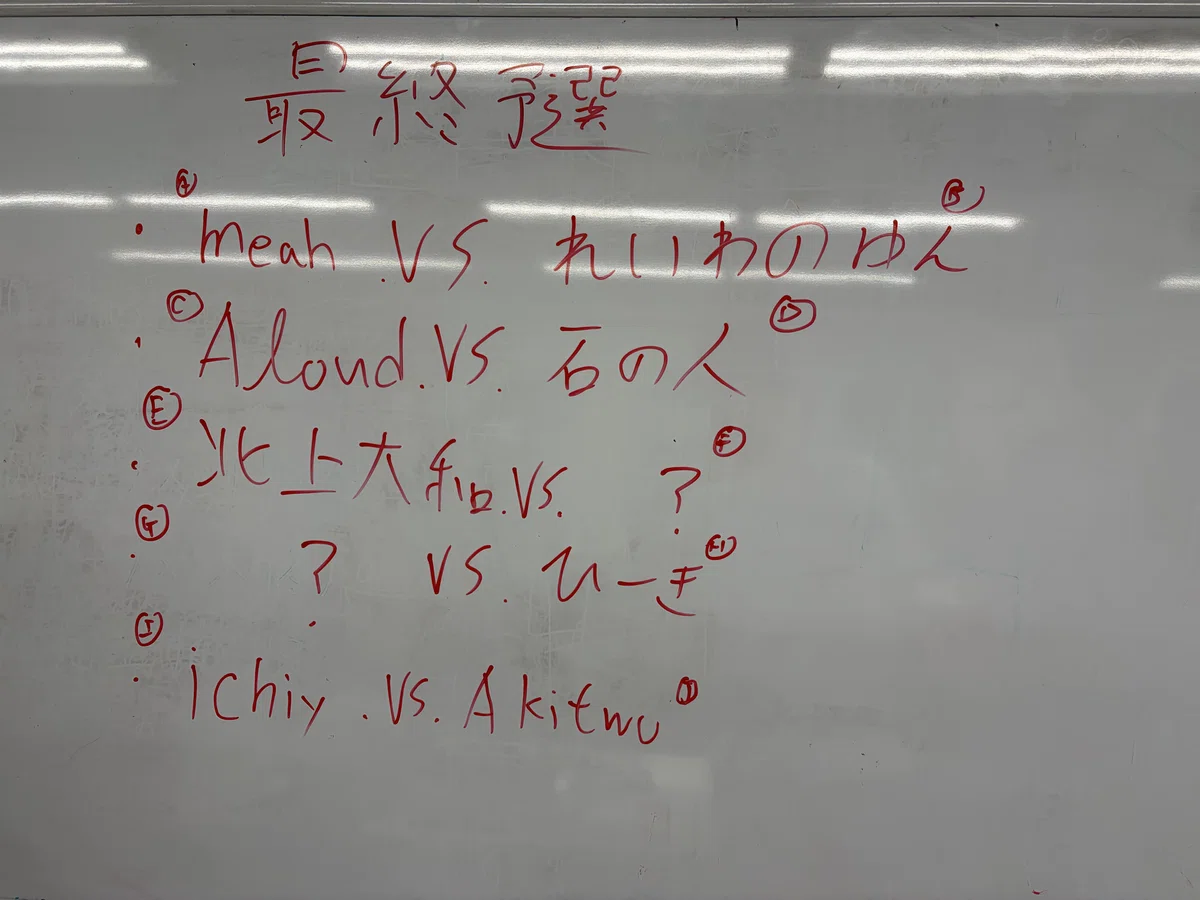 最終予選
Ⓐ Ⓑ
・meah .VS. れいわのゆん
Ⓒ Ⓓ
・Aloud.VS. 石の人
Ⓔ Ⓕ
・北上大和.VS. ?
Ⓖ Ⓗ
・? VS. ひーき
Ⓘ Ⓙ
・ichiy .VS. Akitwo